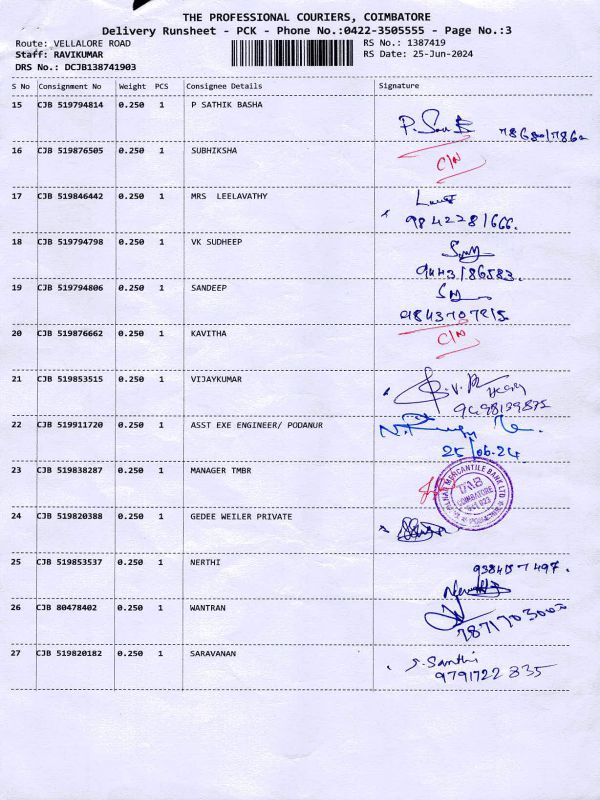 THE PROFESSIONAL COURIERS, COIMBATORE
Delivery Runsheet - PCK - Phone No.:0422-3505555 - Page No.:3
Route: VELLALORE ROAD RS No.: 1387419
Staff: RAVIKUMAR RS Date: 25-Jun-2024
DRS No.: DCJB138741903
S No Consignment No Weight PCS Consignee Details Signature
15 CJB 519794814 0.250 1 P SATHIK BASHA
16 CJB 519876505 0.250 1 SUBHIKSHA
C/N
17 CJB 519846442 0.250 1 MRS LEELAVATHY
9842281666.
18 CJB 519794798 0.250 1 VK SUDHEEP
9443186583.
19 CJB 519794806 0.250 1 SANDEEP
9843707215
20 CJB 519876662 0.250 1 KAVITHA
C/N
21 CJB 519853515 0.250 1 VIJAYKUMAR
22 CJB 519911720 0.250 1 ASST EXE ENGINEER/ PODANUR
25/06.24
23 CJB 519838287 0.250 1 MANAGER TMBR
MERCANTILE BANK LTD
TMB
COIMBATORE
24 CJB 519820388 0.250 1 GEDEE WEILER PRIVATE
25 CJB 519853537 0.250 1 NERTHI
26 CJB 80478402 0.250 1 WANTRAN
7871703003
27 CJB 519820182 0.250 1 SARAVANAN
S. Santhi
9791722835